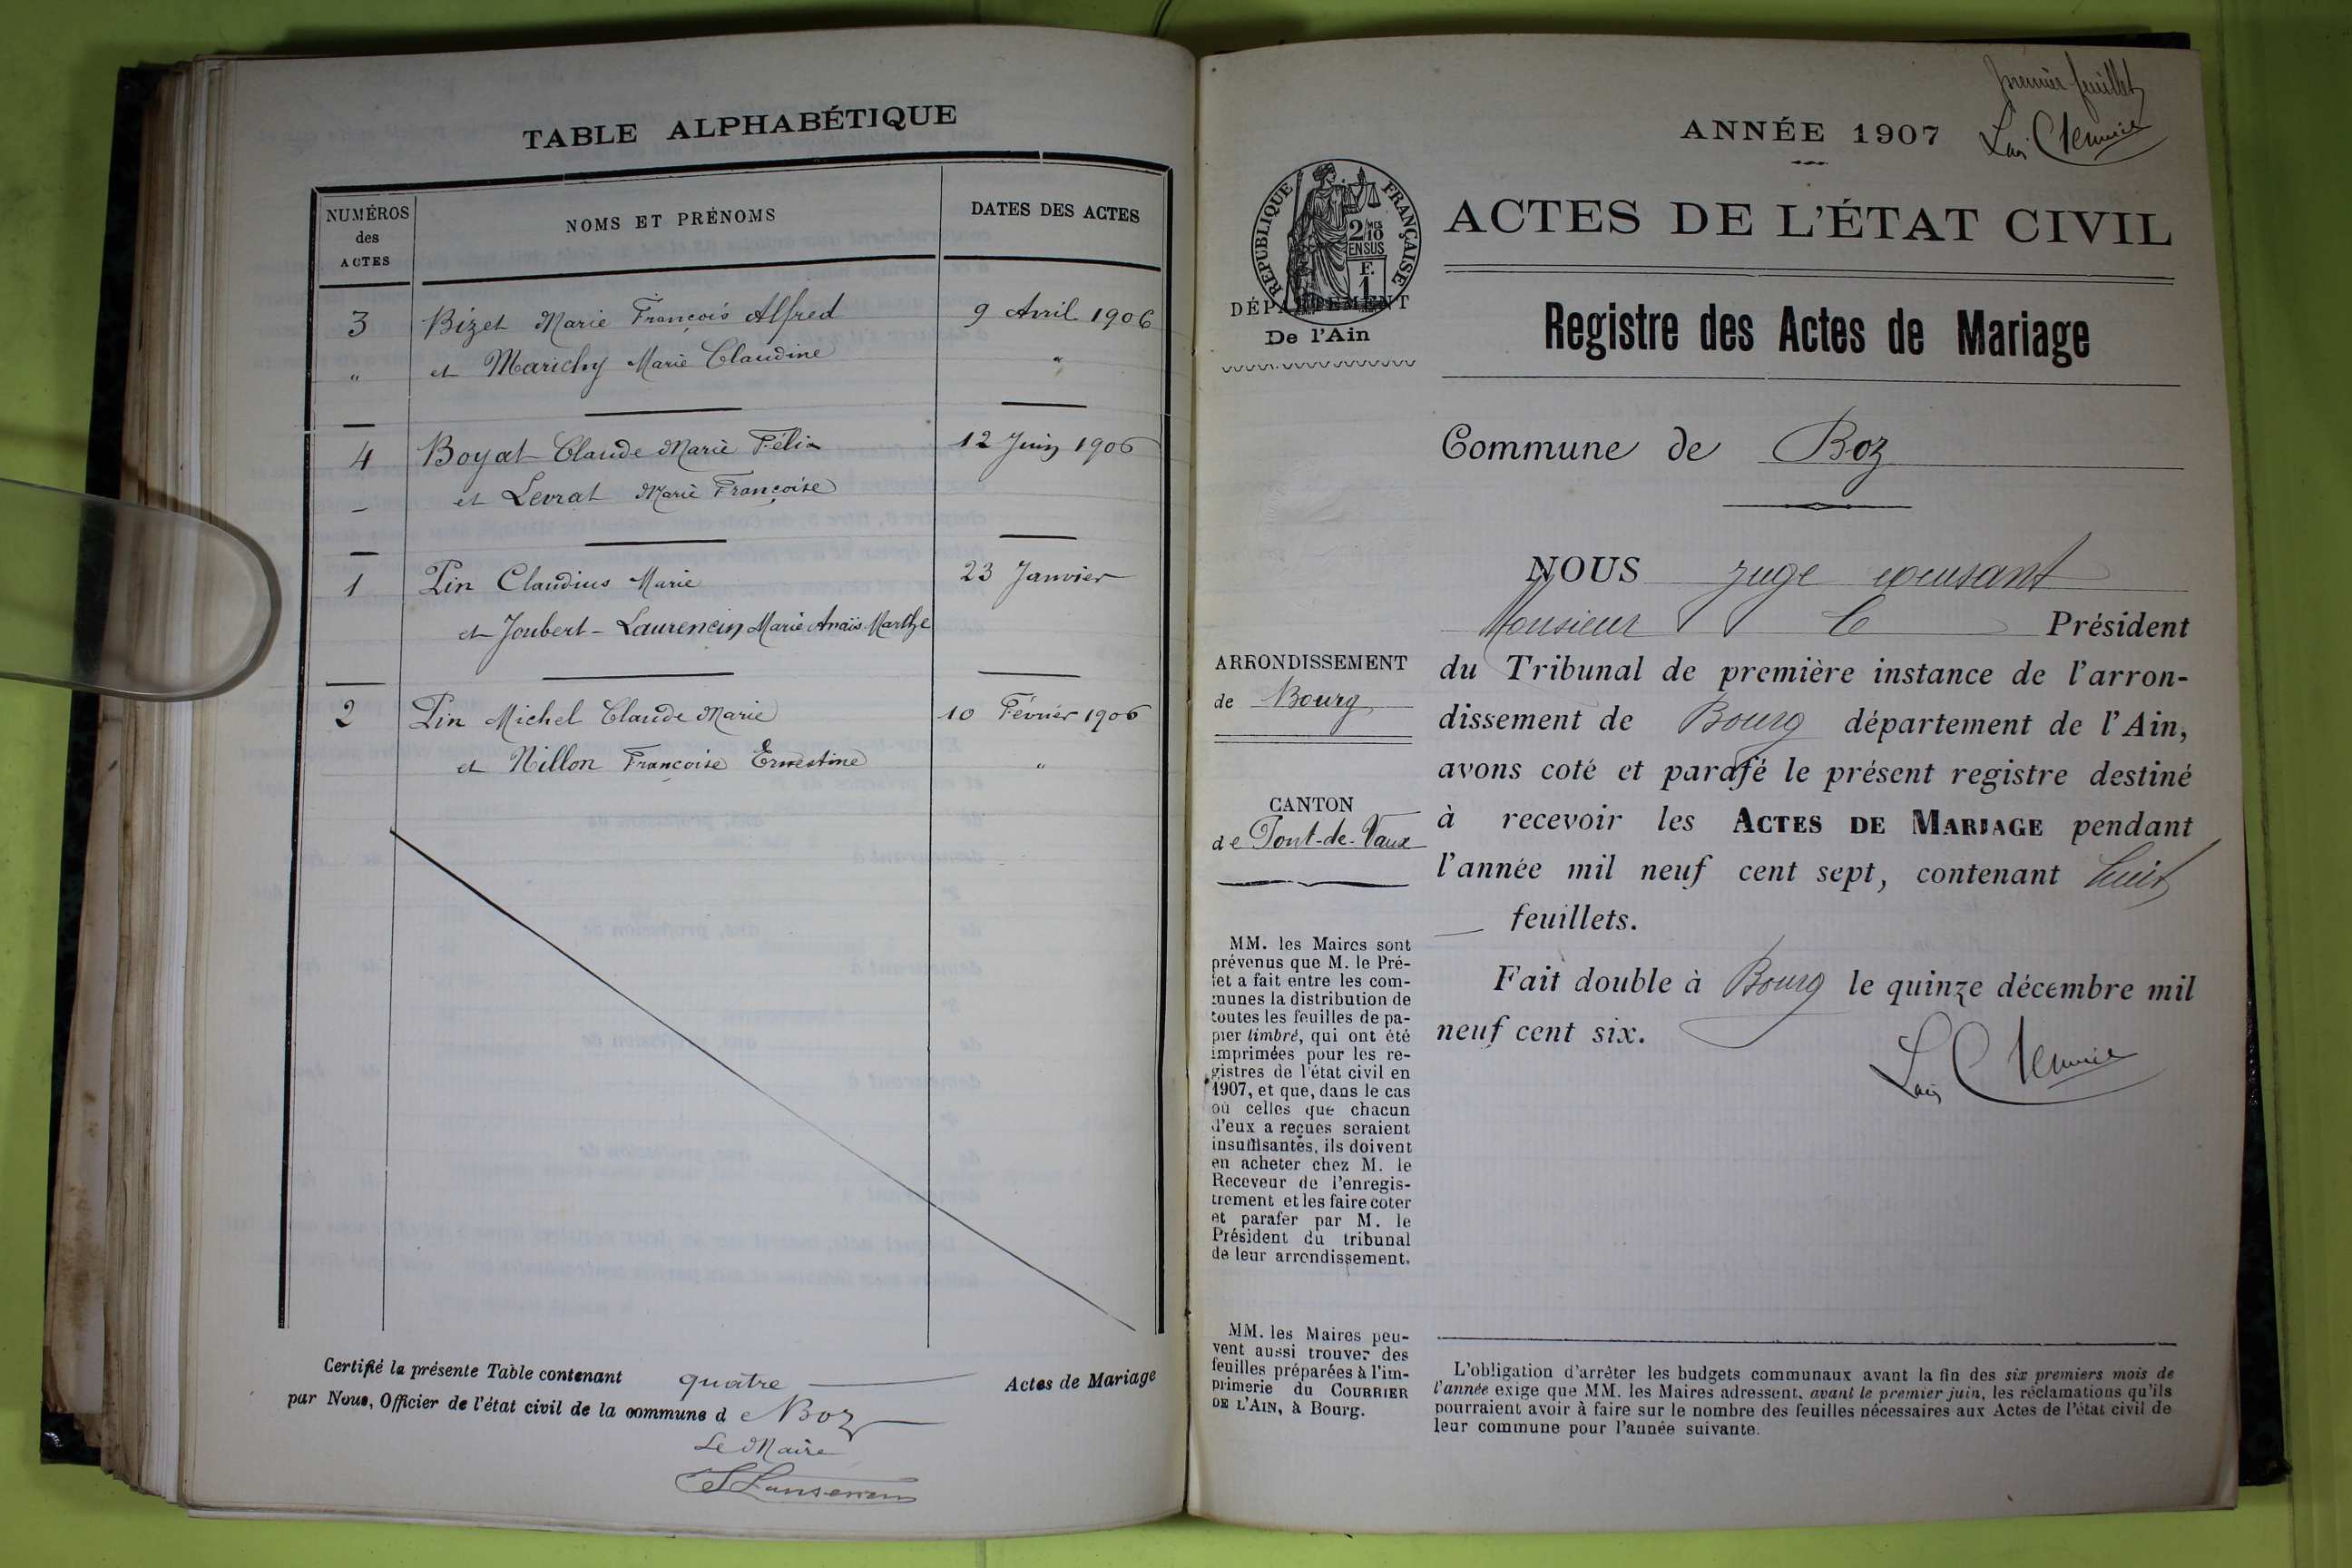 TABLE ALPHABÉTIQUE
NUMÉROS
des
ACTES
NOMS ET PRÉNOMS
DATES DES ACTES
3 Bizet Marie François Alfred 9 Avril 1906
" et Marichy Marie Claudine "
4 Boyat Claude Marie Félix 12 Juin 1906
et Levrat Marie Françoise
1 Pin Claudius Marie 23 Janvier
et Joubert-Laurencin Marie Anaïs Marthe
2 Pin Michel Claude Marie 10 Février 1906
et Nillon Françoise Ernestine "
Certifié la présente Table contenant quatre Actes de Mariage
par Nous, Officier de l'état civil de la commune d e Boz
Le Maire
premier feuillet
ANNÉE 1907
RÉPUBLIQUE FRANÇAISE
2/10 MES
EN SUS
F.
1
DÉPARTEMENT
De l'Ain
ACTES DE L'ÉTAT CIVIL
Registre des Actes de Mariage
Commune de Boz
ARRONDISSEMENT
de Bourg
CANTON
de Pont-de-Vaux
MM. les Maires sont
prévenus que M. le Pré-
fet a fait entre les com-
munes la distribution de
toutes les feuilles de pa-
pier timbré, qui ont été
imprimées pour les re-
gistres de l'état civil en
1907, et que, dans le cas
où celles que chacun
d'eux a reçues seraient
insuffisantes, ils doivent
en acheter chez M. le
Receveur de l'enregis-
trement et les faire coter
et parafer par M. le
Président du tribunal
de leur arrondissement.
MM. les Maires peu-
vent aussi trouver des
feuilles préparées à l'im-
primerie du COURRIER
DE L'AIN, à Bourg.
NOUS juge excusant
Monsieur le Président
du Tribunal de première instance de l'arron-
dissement de Bourg département de l'Ain,
avons coté et parafé le présent registre destiné
à recevoir les ACTES DE MARIAGE pendant
l'année mil neuf cent sept, contenant huit
feuillets.
Fait double à Bourg le quinze décembre mil
neuf cent six.
L'obligation d'arrêter les budgets communaux avant la fin des six premiers mois de
l'année exige que MM. les Maires adressent, avant le premier juin, les réclamations qu'ils
pourraient avoir à faire sur le nombre des feuilles nécessaires aux Actes de l'état civil de
leur commune pour l'année suivante.